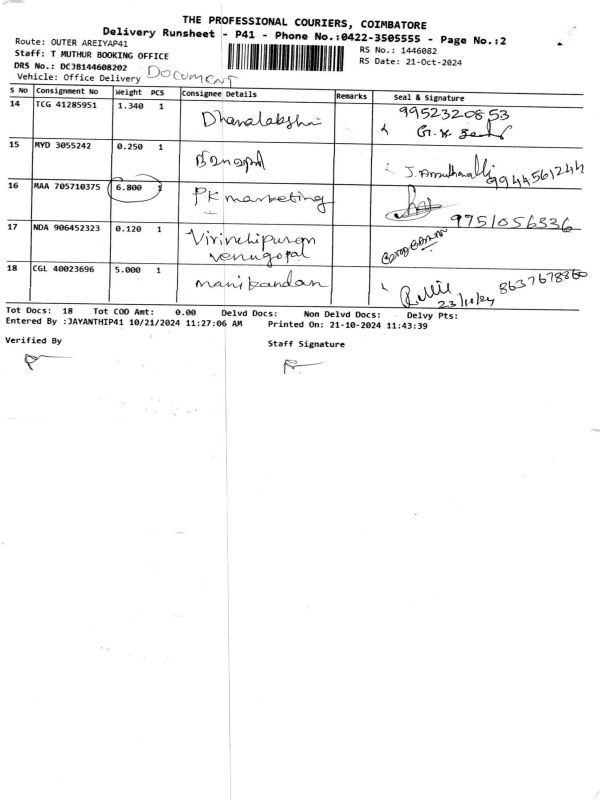 THE PROFESSIONAL COURIERS, COIMBATORE
Delivery Runsheet - P41 - Phone No.:0422-3505555 - Page No.:2
Route: OUTER AREIYAP41
RS No.: 1446082
Staff: T MUTHUR BOOKING OFFICE
RS Date: 21-Oct-2024
DRS No.: DCJB144608202
DOCUMENT
Vehicle: Office Delivery
S No Consignment No Weight PCS Consignee Details Remarks Seal & Signature
14 TCG 41285951 1.340 1 Dhanalakshmi 9952320853
15 MYD 3055242 0.250 1 J. Amuthavalli 9944561244
16 MAA 705710375 6.800 1 PK marketing 9751056336
17 NDA 906452323 0.120 1 Virinchipuram
venugopal
18 CGL 40023696 5.000 1 manikandan 8637678860
23/10/24
Tot Docs: 18 Tot COD Amt: 0.00 Delvd Docs: Non Delvd Docs: Delvy Pts:
Entered By :JAYANTHIP41 10/21/2024 11:27:06 AM Printed On: 21-10-2024 11:43:39
Verified By Staff Signature